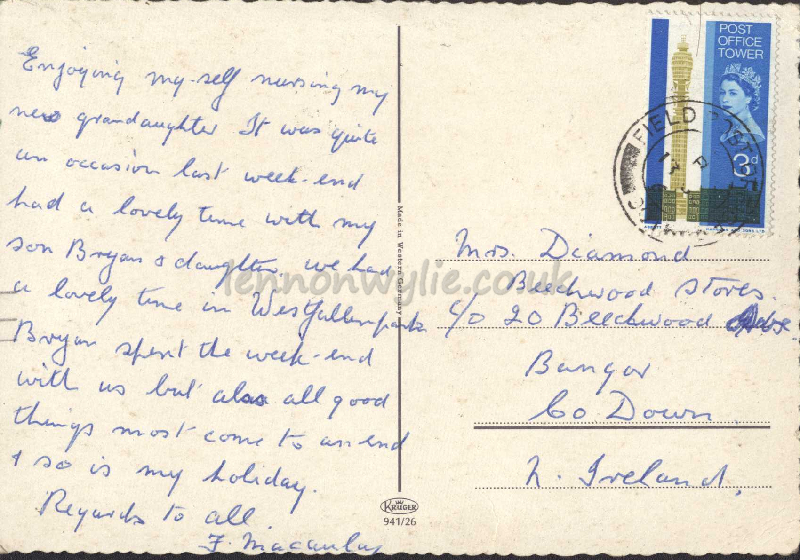 Enjoying my-self nursing my
new grandaughter It was quite
an occasion last week-end
had a lovely time with my
son Bryan & daughter, we had
a lovely time in Westfallenpark
Bryan spent the week-end
with us but alas all good
things most come to an end
& so is my holiday.
Regards to all
F. Macaulay
Made in Western Germany
KRÜGER
941/26
POST
OFFICE
TOWER
3d
FIELD POST OFFICE
Mrs. Diamond
Beechwood Stores.
c/o 20 Beechwood
Bangor
Co Down
N. Ireland,
lennonwylie.co.uk